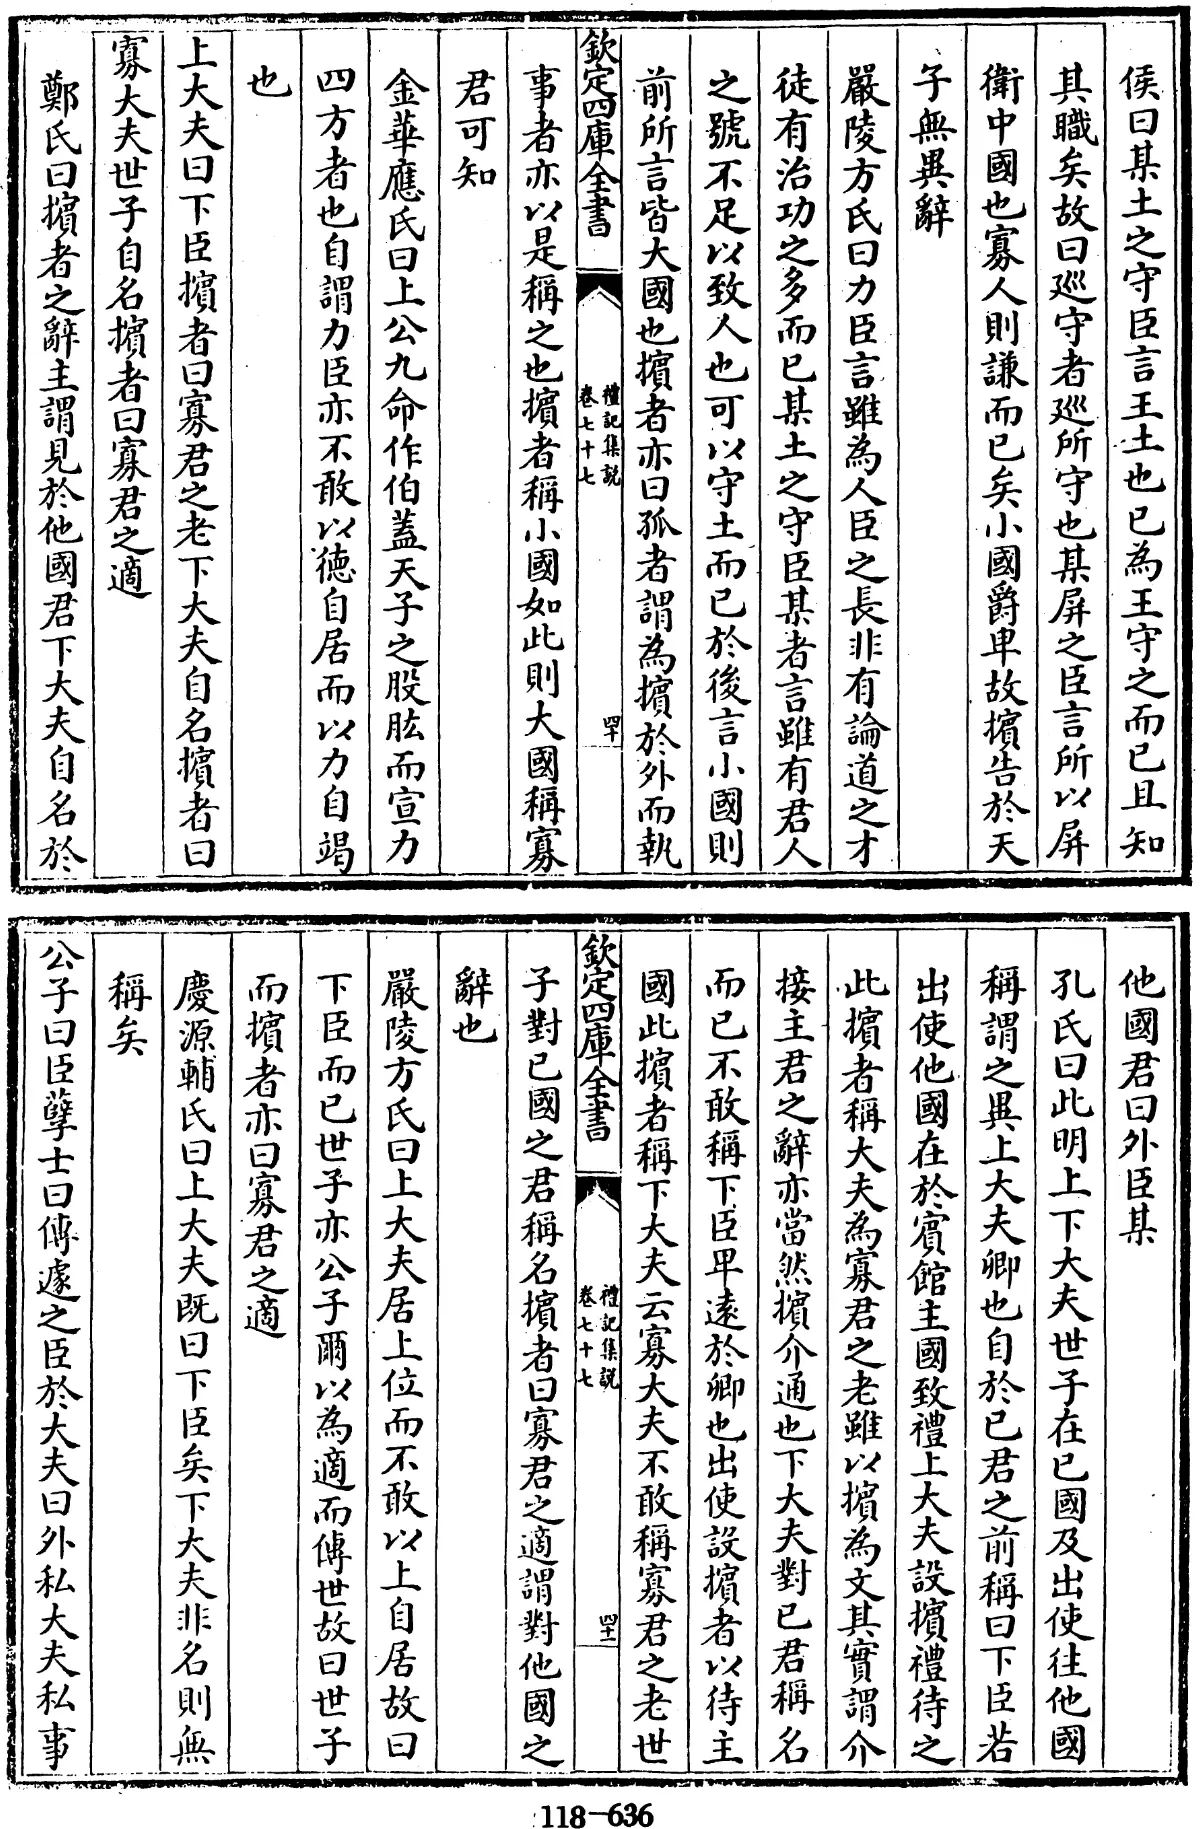 侯曰某土之守臣言王土也已為王守之而已且知
其職矣故曰巡守者巡所守也某屏之臣言所以屏
衛中國也寡人則謙而已矣小國爵卑故擯告於天
子無異辭
嚴陵方氏曰力臣言雖為人臣之長非有論道之才
徒有治功之多而已某土之守臣某者言雖有君人
之號不足以致人也可以守土而已於後言小國則
前所言皆大國也擯者亦曰孤者謂為擯於外而執
欽定四庫全書
禮記集說
卷七十七
四十
事者亦以是稱之也擯者稱小國如此則大國稱寡
君可知
金華應氏曰上公九命作伯蓋天子之股肱而宣力
四方者也自謂力臣亦不敢以德自居而以力自竭
也
上大夫曰下臣擯者曰寡君之老下大夫自名擯者曰
寡大夫世子自名擯者曰寡君之適
鄭氏曰擯者之辭主謂見於他國君下大夫自名於
他國君曰外臣某
孔氏曰此明上下大夫世子在已國及出使往他國
稱謂之異上大夫卿也自於已君之前稱曰下臣若
出使他國在於賓館主國致禮上大夫設擯禮待之
此擯者稱大夫為寡君之老雖以擯為文其實謂介
接主君之辭亦當然擯介通也下大夫對已君稱名
而已不敢稱下臣卑遠於卿也出使設擯者以待主
國此擯者稱下大夫云寡大夫不敢稱寡君之老世
欽定四庫全書
禮記集說
卷七十七
四十一
子對已國之君稱名擯者曰寡君之適謂對他國之
辭也
嚴陵方氏曰上大夫居上位而不敢以上自居故曰
下臣而已世子亦公子爾以為適而傳世故曰世子
而擯者亦曰寡君之適
慶源輔氏曰上大夫既曰下臣矣下大夫非名則無
稱矣
公子曰臣孽士曰傳遽之臣於大夫曰外私大夫私事
118-636